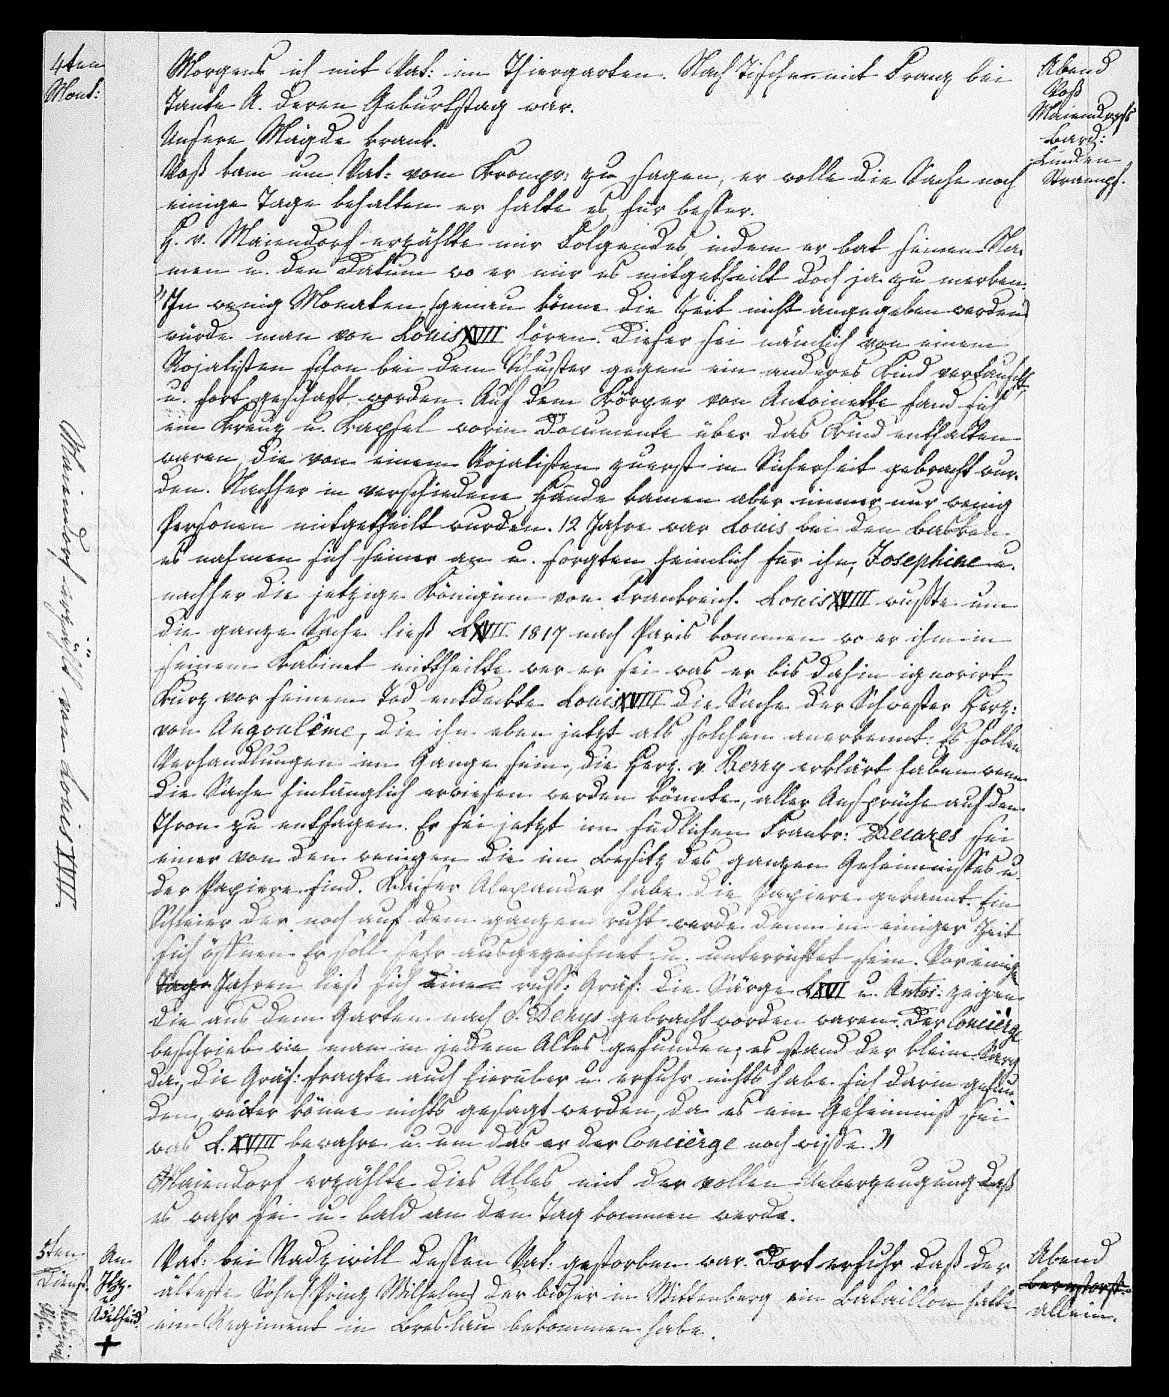 4ten
Mont:
Morgens ich mit Vat: im Thiergarten. Nach Tische mit Franz bei
Tante A. deren Geburtstag war.
Unsere Mägde krank.
Voß kam um Vat: vom Kronpr: zu sagen, er wolle die Sache noch
einige Tage behalten er halte es für besser.
H. v. Maiendorf erzählte mir Folgendes, indem er bat seinen Na-
men u. den Datum wo er mir es mitgetheilt doch ja zu merken.
"In wenig Monaten (genau könne die Zeit nicht angegeben werden)
würde man von Louis XVII hören. Dieser sei nämlich von einem
Rojalisten schon bei dem Schuster gegen ein anderes Kind vertauscht
u. fort geschaft worden. Auf dem Körper von Antoinette fand sich
ein Kreuz u. Kapsel worin Documente über das Kind enthalten
waren, die von einem Rojalisten zuerst in Sicherheit gebracht wur-
den. Nachher in verschiedene Hände kamen aber immer nur wenig
Personen mitgetheilt wurden. 12 Jahre war Louis bei den Basken
es nahmen sich seiner an u. sorgten heimlich für ihn, Josephine u.
nachher die jetzige Königinn von Frankreich. Louis XVIII wußte um
die ganze Sache ließ L XVII 1817 nach Paris kommen wo er ihm in
seinem Kabinet mittheilte wer er sei was er bis dahin ignorirt
Kurz vor seinem Tod entdeckte Louis XVIII die Sache der Schwester Herz:
von Angoulême, die ihn eben jetzt als solchen anerkennt. Es sollen
Verhandlungen im Gange sein, die Herz. v Berry erklärt haben wenn
die Sache hinlänglich erwiesen werden könnte, aller Ansprüche auf den
Thron zu entsagen. Er sei jetzt im südlichen Frankr: Decazes sei
einer von den wenigen die im Besitz des ganzen Geheimnisses u.
der Papiere sind. Kaiser Alexander habe die Papiere gekannt. Ein
Schleier der noch auf dem ganzen ruht werde denn in einiger Zeit
sich öffnen. Er soll sehr ausgezeichnet u. unterrichtet sein. Vor einige
Tage Jahren ließ sich eine russ: Gräf: die Särge L XVI u. Antoi: zeigen
die aus dem Garten nach S. Denys gebracht worden waren. Der Concièrge
beschrieb wie man in jedem Alles gefunden; es stand der kleine Sarg
da, die Gräf: fragte auch hierüber u. erfuhr nichts habe sich darin gefun-
den, weiter könne nichts gesagt werden, da es ein Geheimniß sei
was L. XVIII bewahre u. um das er der Concièrge noch wisse."
Maiendorf erzählte dies Alles mit der vollen Ueberzeugung daß
es wahr sei u. bald an den Tag kommen werde.
Abend
Voß
Maiendorfs
Bard:
Linden
Strampf.
Maiendorf erzählt von Louis XVII.
5ten
Dienst.
An
Itz.
u
Adelheid.
Vat: bei Radziwill dessen Vat: gestorben war. Dort erfuhr daß der
älteste Sohn (Prinz Wilhelm) der bisher in Wittenberg ein Bataillon hatte
ein Regiment in Breslau bekommen habe.
Abend
Bernstorff
allein.